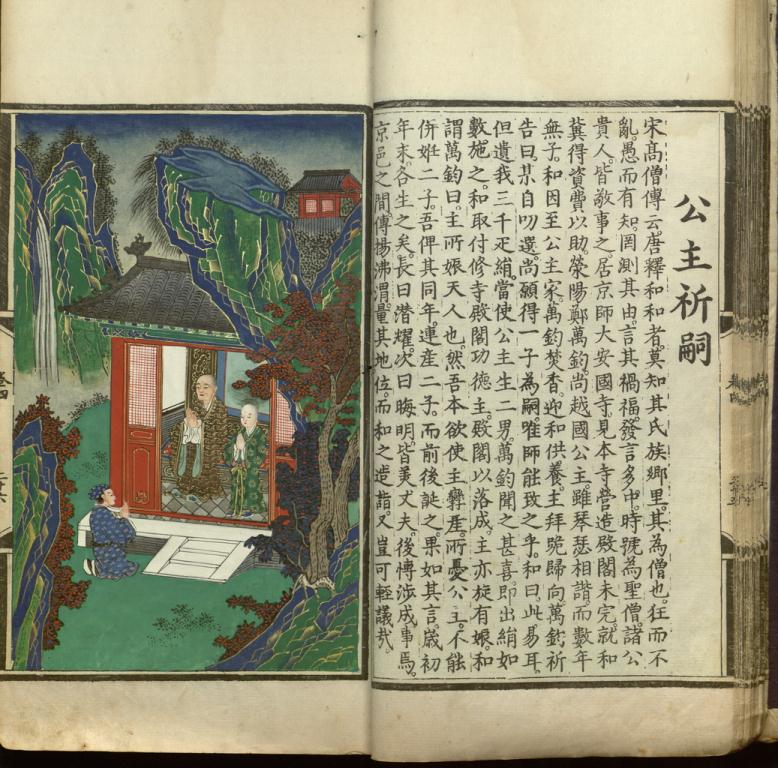 公主祈嗣
宋高僧傳云唐釋和和者莫知其氏族鄉里其為僧也狂而不
亂愚而有知罔測其由言其禍福發言多中時號為聖僧諸公
貴人皆敬事之居京師大安國寺見本寺營造殿閣未完就和
冀得資費以助滎陽鄭萬鈞尚越國公主雖琴瑟相諧而數年
無子和因至公主家萬鈞焚香迎和供養主拜跪歸向萬鈞祈
告曰某自叨選尚願得一子為嗣唯師能致之乎和曰此易耳
但遺我三千疋絹當使公主生二男萬鈞聞之甚喜即出絹如
數施之和取付修寺殿閣功德主殿閣以落成主亦旋有娠和
謂萬鈞曰主所娠天人也然吾本欲使主孿產所憂公主不能
併妊二子吾俾其同年連産二子而前後誕之果如其言歲初
年末各生之矣長曰潛耀次曰晦明皆美丈夫後博涉成事焉
京邑之間傳揚沸渭量其地位而和之造詣又豈可輕議哉